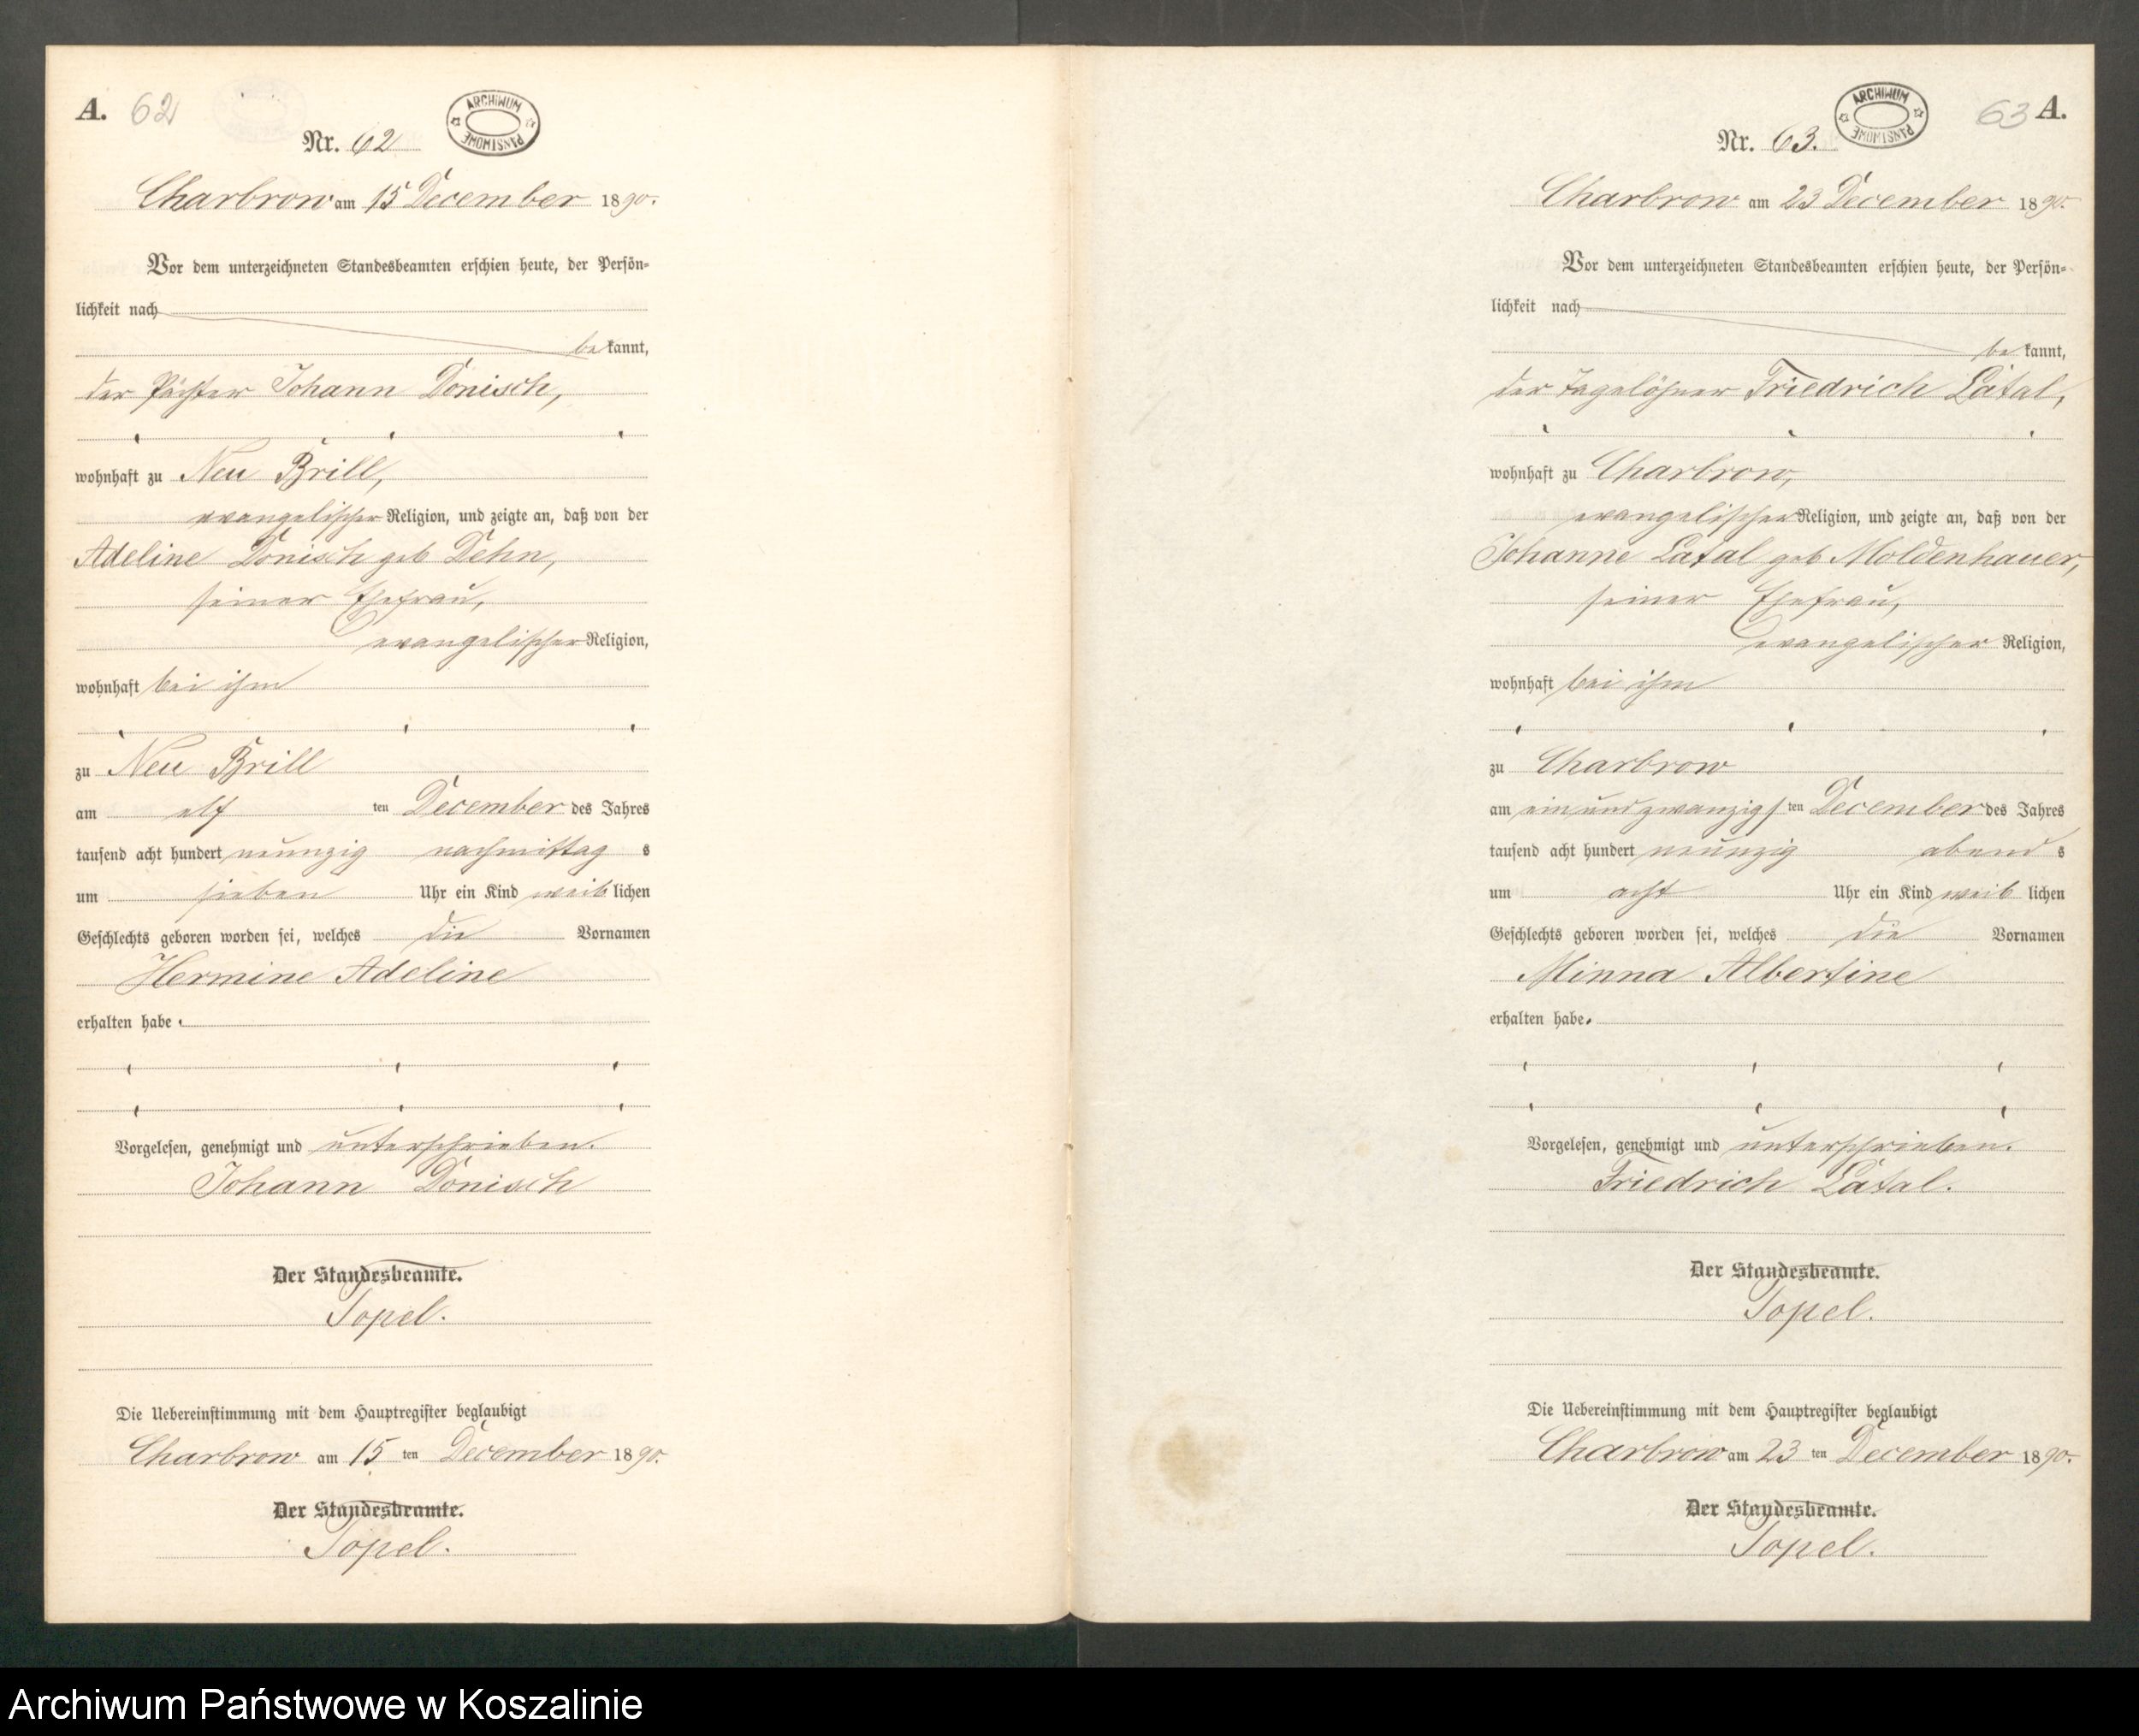 A. 62
ARCHIWUM PAŃSTWOWE
Nr. 62
Charbrow am 15 December 1890.
Vor dem unterzeichneten Standesbeamten erschien heute, der Persön-
lichkeit nach
bekannt,
der Pächter Johann Donisch,
wohnhaft zu Neu Brill,
evangelischer Religion, und zeigte an, daß von der
Adeline Donisch geb Dehn,
seiner Ehefrau,
evangelischer Religion,
wohnhaft bei ihm
zu Neu Brill
am elf ten December des Jahres
tausend acht hundert neunzig nachmittag s
um sieben Uhr ein Kind weiblichen
Geschlechts geboren worden sei, welches die Vornamen
Hermine Adeline
erhalten habe.
Vorgelesen, genehmigt und unterschrieben.
Johann Donisch
Der Standesbeamte.
Topel.
Die Uebereinstimmung mit dem Hauptregister beglaubigt
Charbrow am 15 ten December 1890.
Der Standesbeamte.
Topel.
63 A.
ARCHIWUM PAŃSTWOWE
Nr. 63.
Charbrow am 23 December 1890.
Vor dem unterzeichneten Standesbeamten erschien heute, der Persön-
lichkeit nach
bekannt,
der Tagelöhner Friedrich Latal,
wohnhaft zu Charbrow,
evangelischer Religion, und zeigte an, daß von der
Johanne Latal geb Moldenhauer,
seiner Ehefrau,
evangelischer Religion,
wohnhaft bei ihm
zu Charbrow
am ein und zwanzigsten December des Jahres
tausend acht hundert neunzig abend s
um acht Uhr ein Kind weiblichen
Geschlechts geboren worden sei, welches die Vornamen
Minna Albertine
erhalten habe.
Vorgelesen, genehmigt und unterschrieben.
Friedrich Latal.
Der Standesbeamte.
Topel.
Die Uebereinstimmung mit dem Hauptregister beglaubigt
Charbrow am 23 ten December 1890.
Der Standesbeamte.
Topel.
Archiwum Państwowe w Koszalinie